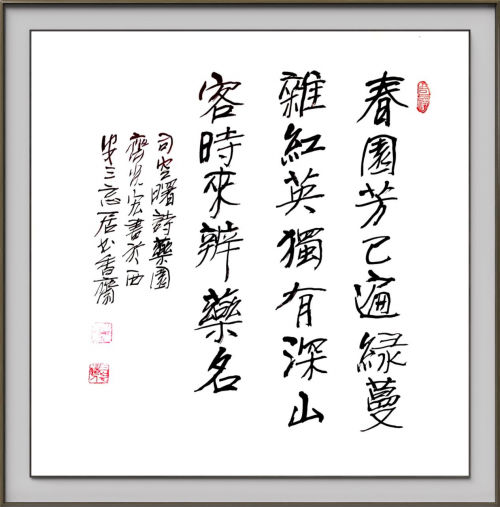 春園芳已遍綠蔓
雜紅英獨有深山
客時來辨藥名
司空曙詩藥園
齊宏書於西
三忘居书香齋